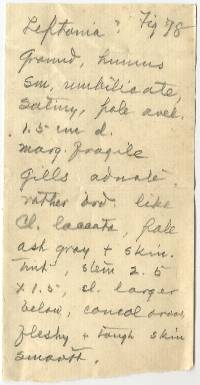 Leptonia? Fig 78
Ground, humus
sm, umbilicate,
satiny, pale avel.
1.5 cm d.
marg. fragile
gills adnate
rather brd. like
Cl. laccata, pale
ash gray + skin.
tint, stem 2.5
x 1.5, sl. larger
below, concolorous
fleshy + tough skin
smooth.